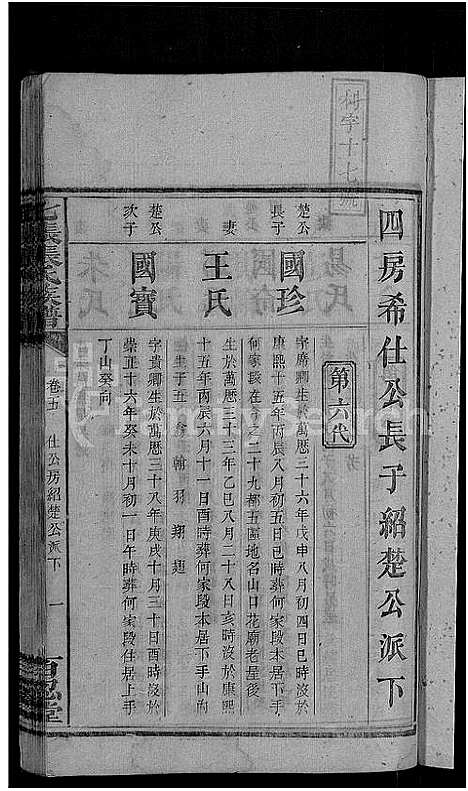 利字十七號
四房希仕公長子紹楚公派下
第六代
楚公長子
國珍
字席卿生於萬曆三十六年戊申八月初四日巳時沒於
康熙十五年丙辰八月初五日巳時葬何家段本居後
何家段在會之二十九都五區地名山口花廟老屋後
妻
王氏
生於萬曆三十三年乙巳八月二十八日亥時沒於康熙
十五年丙辰六月十一日酉時葬何家段本居下手山內
生子五 翰 羽 翔 翅
楚公次子
國賓
字貴卿生於萬曆三十八年庚戌十月三十日酉時沒於
崇正十六年癸未十月初一日午時葬何家段住居上手
丁山癸向
張氏族譜
卷五
仕公房紹楚公派下
一
百忍堂